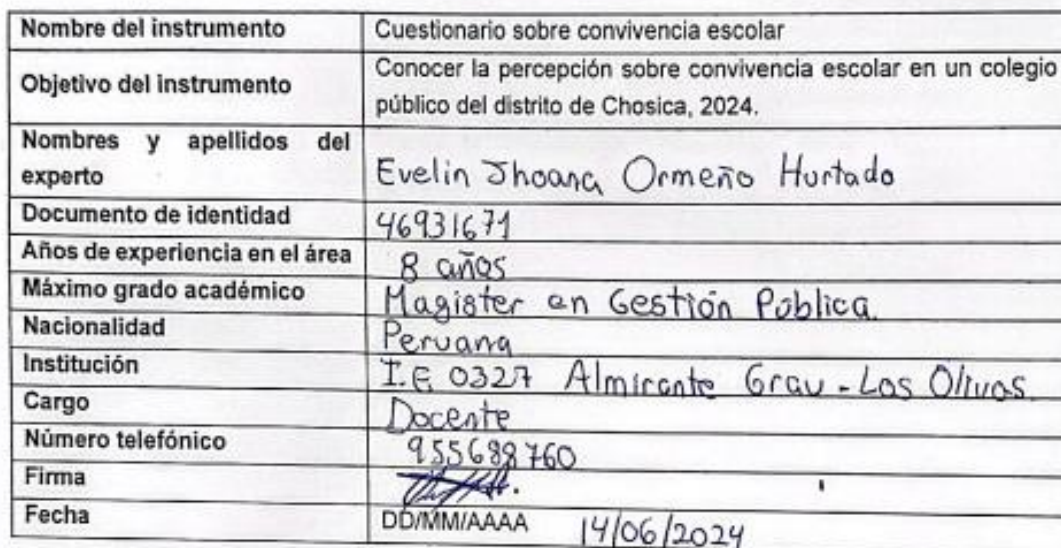 Nombre del instrumento Cuestionario sobre convivencia escolar
Objetivo del instrumento Conocer la percepción sobre convivencia escolar en un colegio
público del distrito de Chosica, 2024.
Nombres y apellidos del
experto Evelin Jhoana Ormeño Hurtado
Documento de identidad 46931671
Años de experiencia en el área 8 años
Máximo grado académico Magister en Gestión Pública.
Nacionalidad Peruana
Institución I.E 0327 Almirante Grau - Los Olivos.
Cargo Docente
Número telefónico 955688760
Firma
Fecha DD/MM/AAAA 14/06/2024